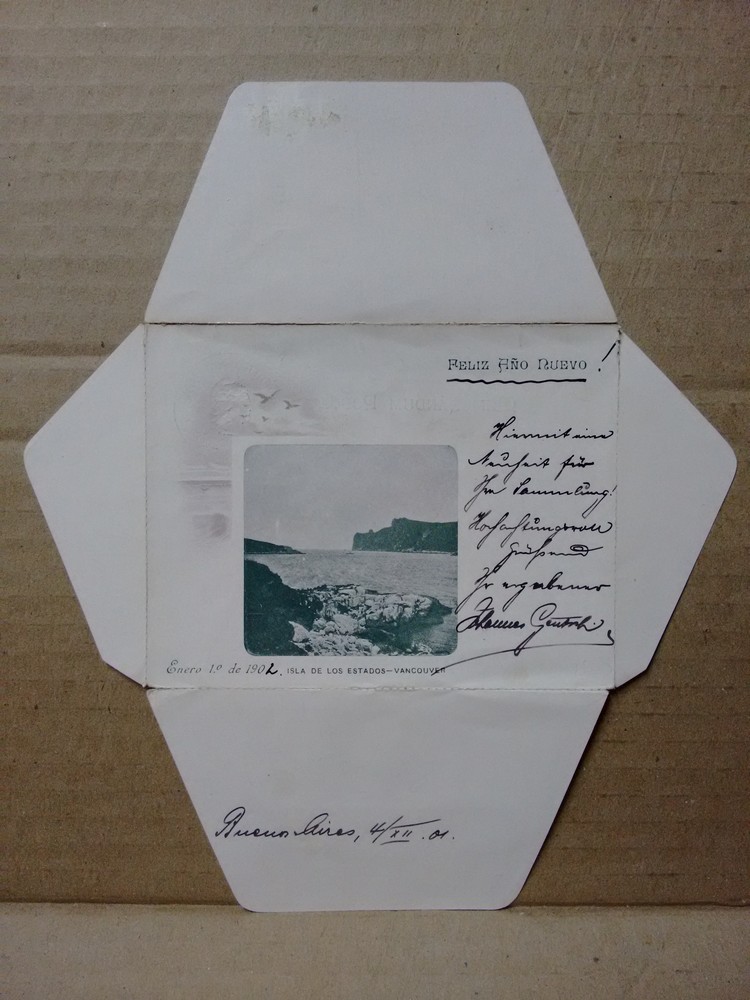 FELIZ AÑO NUEVO !
Hiermit eine
Neuheit für
Ihre Sammlung!
Hochachtungsvoll
grüßend
Ihr ergebener
Johannes
Enero 1.º de 1902. ISLA DE LOS ESTADOS—VANCOUVER
Buenos Aires, 4/XII. 01.